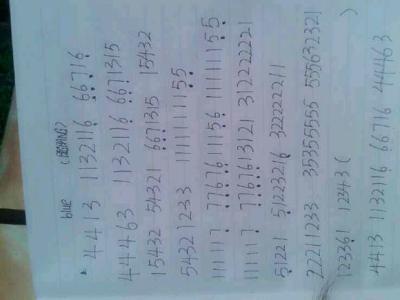 blue
4413 1132116 66716
44463 1132116 6671315
15432 54321 6671315 15432
54321233 111111111155
111117 7767611156 111111155
111117 77667613121 3122222221
51221 51223216 322222211
22211233 35355555 555632321
123361 12343(
4413 1132116 66716 444463
)